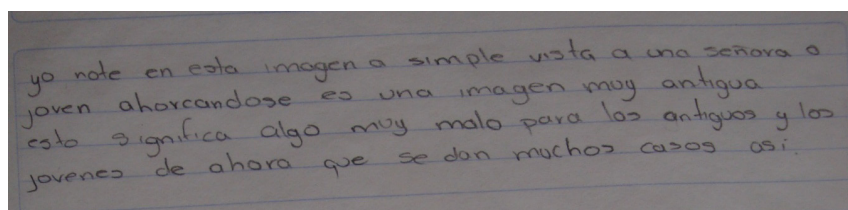 yo note en esta imagen a simple vista a una señora o
joven ahorcandose es una imagen muy antigua
esto significa algo muy malo para los antiguos y los
jovenes de ahora que se dan muchos casos asi.